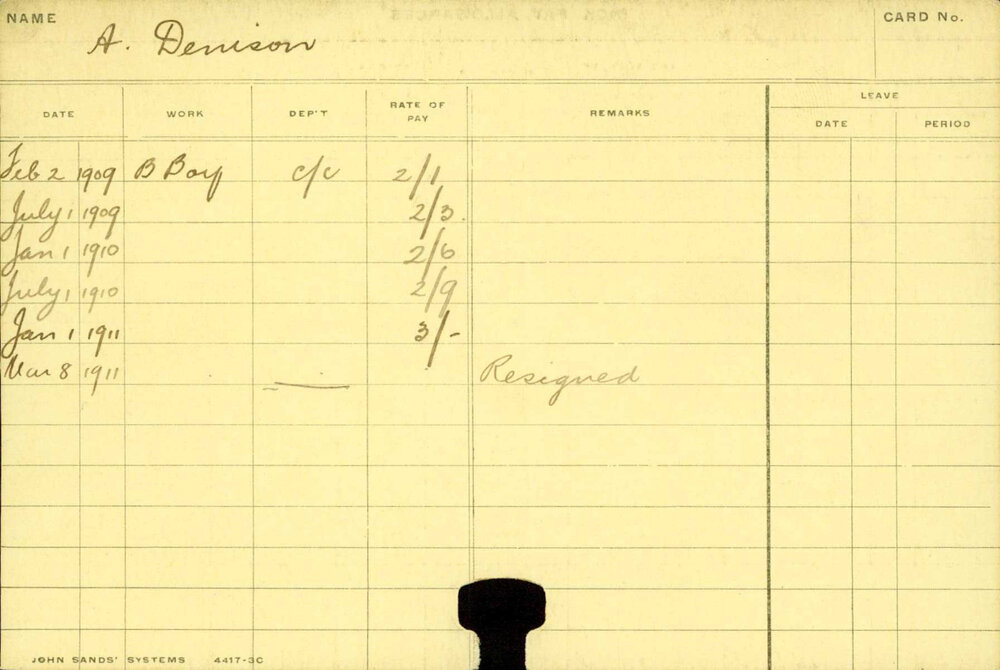 NAME
A. Denison
CARD No.
DATE WORK DEP'T RATE OF PAY REMARKS LEAVE
DATE PERIOD
Feb 2 1909 B Boy c/c 2/1
July 1 1909 2/3.
Jan 1 1910 2/6
July 1 1910 2/9
Jan 1 1911 3/-
Mar 8 1911 Resigned
JOHN SANDS' SYSTEMS 4417-3C